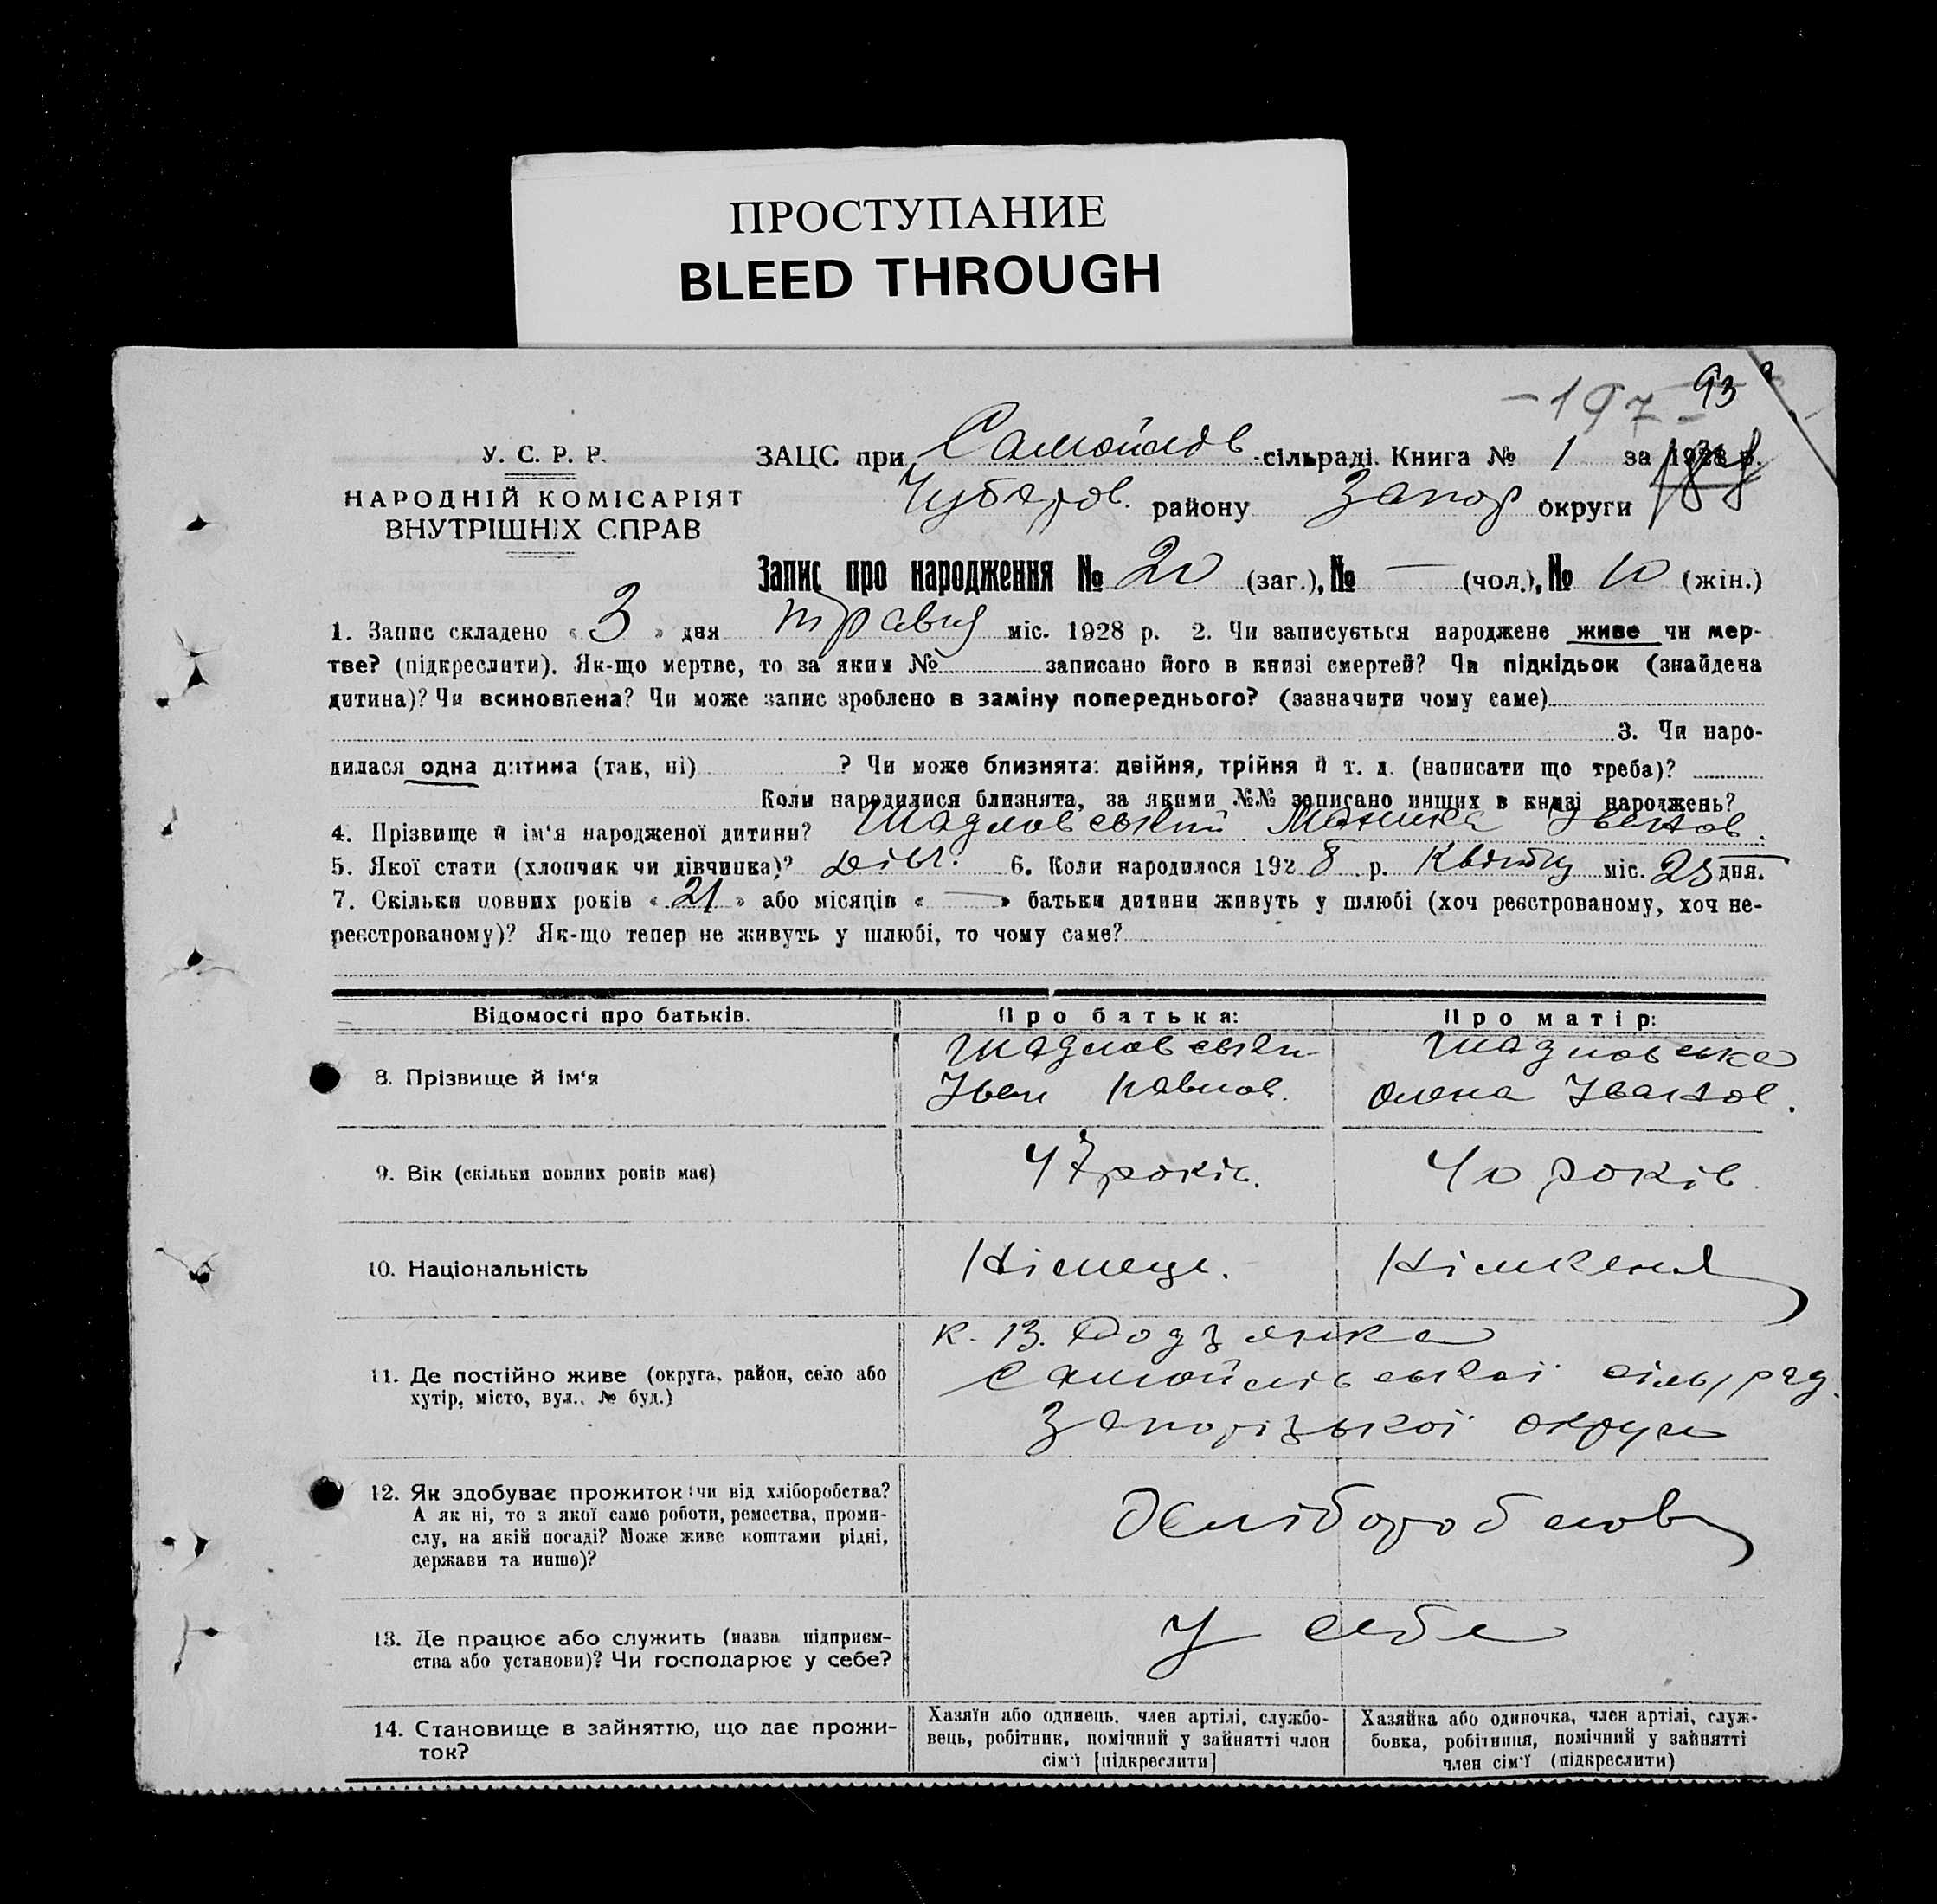 ПРОСТУПАНИЕ
BLEED THROUGH
-197- 93
У. С. Р. Р.
НАРОДНІЙ КОМІСАРІЯТ
ВНУТРІШНІХ СПРАВ
ЗАЦС при Самойлов сільраді. Книга № 1 за 1928 р.
Чубаров. району Запор округи
Запис про народження № 20 (заг.), № — (чол.), № 10 (жін.)
1. Запис складено « 3 » дня травня міс. 1928 р. 2. Чи записується народжене живе чи мер-
тве? (підкреслити). Як-що мертве, то за яким № записано його в книзі смертей? Чи підкідьок (знайдена
дитина)? Чи всиновлена? Чи може запис зроблено в заміну попереднього? (зазначити чому саме)
3. Чи наро-
дилася одна дитина (так, ні) ? Чи може близнята: двійня, трійня й т. д. (написати що треба)?
Коли народилися близнята, за якими №№ записано инших в книзі народжень?
4. Прізвище й ім‘я народженої дитини? Іванов.
5. Якої стати (хлопчик чи дівчинка)? дівч. 6. Коли народилося 192 8 р. Квітня міс. 25 дня.
7. Скільки повних років « 21 » або місяців « — » батьки дитини живуть у шлюбі (хоч реєстрованому, хоч не-
реєстрованому)? Як-що тепер не живуть у шлюбі, то чому саме?
Відомості про батьків. Про батька: Про матір:
8. Прізвище й ім‘я
Іван Павлов. Олена Іванов.
9. Вік (скільки повних років має) 47 років. 40 років
10. Національність Німець. Німкеня
11. Де постійно живе (округа, район, село або
хутір, місто, вул., № буд.)
к. 13. Родзянка
Самойлівської сільрад.
Запорізької округи
12. Як здобуває прожиток: чи від хліборобства?
А як ні, то з якої саме роботи, ремества, проми-
слу, на якій посаді? Може живе коштами рідні,
держави та инше)?
Хліборобством
13. Де працює або служить (назва підприєм-
ства або установи)? Чи господарює у себе?
У себе
14. Становище в зайняттю, що дає прожи-
ток?
Хазяїн або одинець, член артілі, службо-
вець, робітник, помічний у зайнятті член
сім‘ї [підкреслити]
Хазяйка або одиночка, член артілі, служ-
бовка, робітниця, помічний у зайнятті
член сім‘ї (підкреслити)